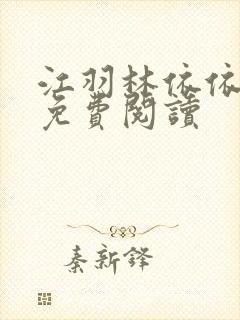 江羽林依依
免費閱讀
秦新鐸